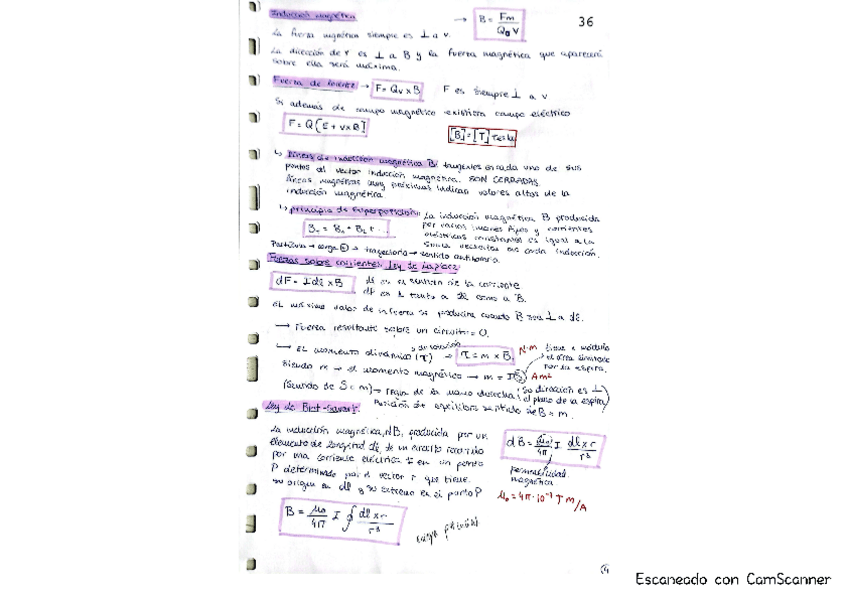 Inducción magnética → B = Fm / Q₀ v
36
La fuerza magnética siempre es ⊥ a v.
La dirección de v es ⊥ a B y la fuerza magnética que aparecerá
sobre ella será máxima.
Fuerza de Lorentz → F = Qv × B F es siempre ⊥ a v
Si además de campo magnético existiera campo eléctrico
F = Q [E + v × B] [B] = [T] tesla
↳ Líneas de inducción magnética B: tangentes en cada uno de sus
puntos al vector inducción magnética. SON CERRADAS.
líneas magnéticas muy próximas indican valores altos de la
inducción magnética
↳ principio de superposición: La inducción magnética B producida
por varios imanes fijos y corrientes
eléctricas constantes es igual a la
suma vectorial de cada inducción.
Partícula → carga ⊖ → trayectoria → sentido antihorario
Fuerzas sobre corrientes. Ley de Laplace
dF = I dℓ × B dℓ es el sentido de la corriente
dF es ⊥ tanto a dℓ como a B.
El máximo valor de la fuerza se producirá cuando B sea ⊥ a dℓ.
→ Fuerza resultante sobre un circuito = 0.
↳ El momento dinámico (τ) → τ = m × B N·m
Siendo m → el momento magnético → m = I S A m²
tiene x módulo
el área limitada
por la espira.
(Sentido de S = m) → regla de la mano derecha (su dirección es ⊥
el plano de la espira)
Posición de equilibrio sentido de B = m.
Ley de Biot-Savart
La inducción magnética, dB, producida por un
elemento de longitud dℓ de un circuito recorrido
por una corriente eléctrica I en un punto
P determinado por el vector r que tiene
su origen en dℓ y su extremo en el punto P
dB = μ₀ / 4π I dℓ × r / r³
permeabilidad
magnética
μ₀ = 4π · 10⁻⁷ T m/A
B = μ₀ / 4π I ∮ dℓ × r / r³
Escaneado con CamScanner